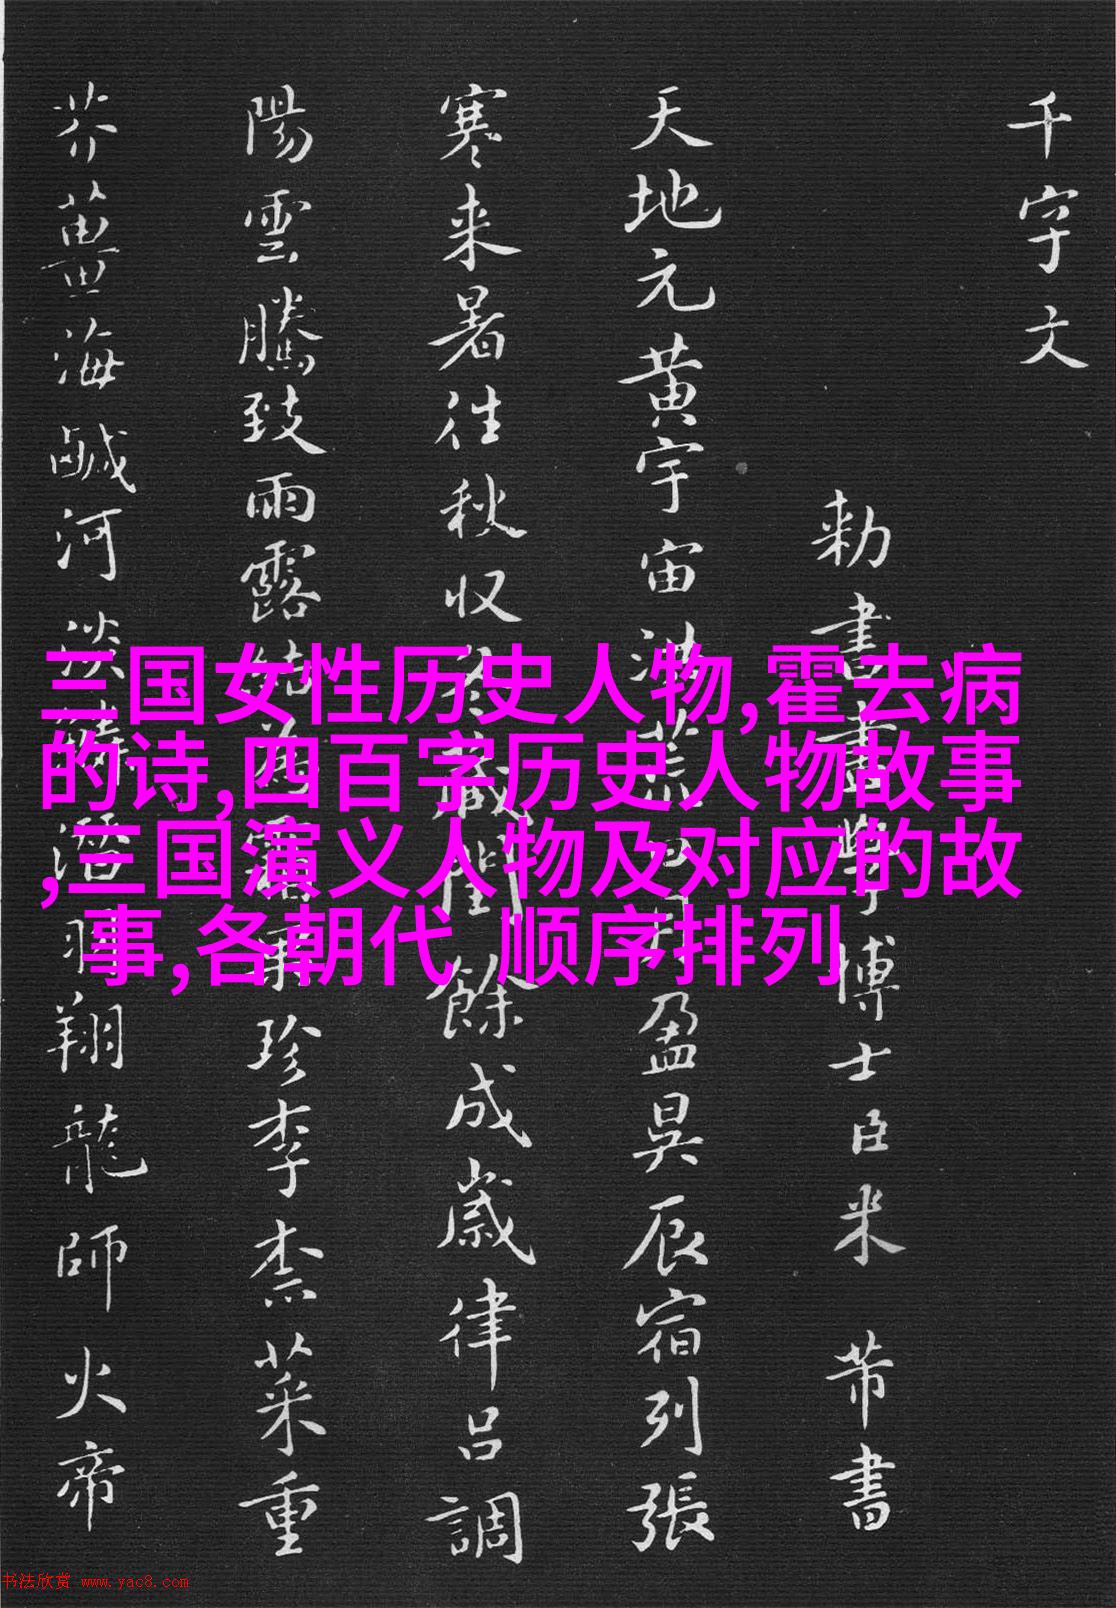 千字文
勅書畫學博士臣米芾書
天地元黄宇宙洪荒日月盈昃辰宿列張
寒来暑往秋收冬藏閏餘成嵗律吕調
陽雲騰致雨露結為霜果珍李柰菜重
芥薑海鹹河淡鱗潛羽翔龍師火帝
三国女性历史人物,霍去病
的诗,四百字历史人物故事
,三国演义人物及对应的故
事,各朝代 顺序排列
书法欣赏 www.yac8.com